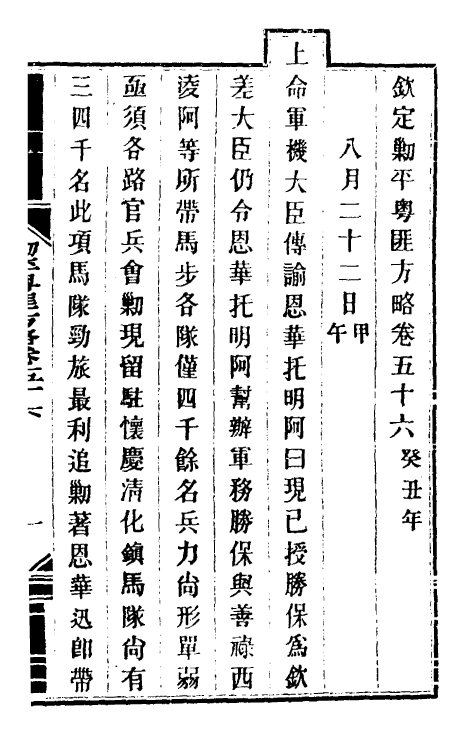 欽定勦平粵匪方略卷五十六癸丑年
八月二十二日甲午
上命軍機大臣傳諭恩華托明阿曰現已授勝保為欽
差大臣仍令恩華托明阿幫辦軍務勝保與善祿西
凌阿等所帶馬步各隊僅四千餘名兵力尚形單弱
亟須各路官兵會勦現留駐懷慶清化鎮馬隊尚有
三四千名此項馬隊勁旅最利追勦著恩華迅卽帶
勦平粵匪方略卷五十六
一